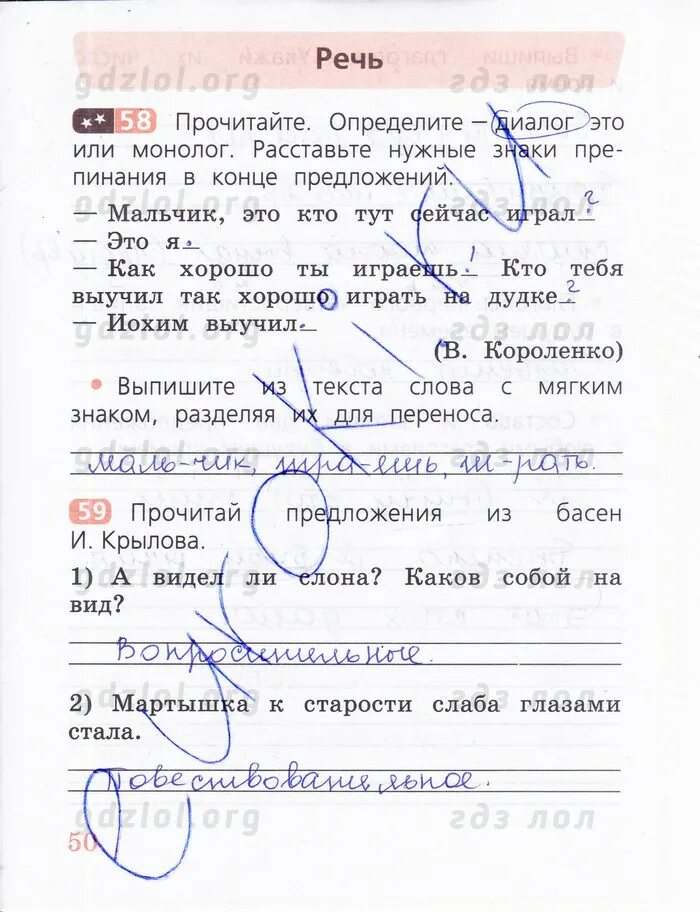 Речь
gdzlol.org гдз лол
58 Прочитайте. Определите – диалог это
или монолог. Расставьте нужные знаки пре-
пинания в конце предложений.
gdzlol.org гдз лол
— Мальчик, это кто тут сейчас играл ?
— Это я .
— Как хорошо ты играешь ! Кто тебя
выучил так хорошо играть на дудке ?
gdzlol.org гдз лол
— Иохим выучил .
(В. Короленко)
• Выпишите из текста слова с мягким
знаком, разделяя их для переноса.
gdzlol.org гдз лол
маль-чик, игра-ешь, иг-рать.
59 Прочитай предложения из басен
И. Крылова.
1) А видел ли слона? Каков собой на
gdzlol.org гдз лол
вид?
Вопросительные.
2) Мартышка к старости слаба глазами
gdzlol.org гдз лол
стала.
Повествовательное.
gdzlol.org гдз лол
50